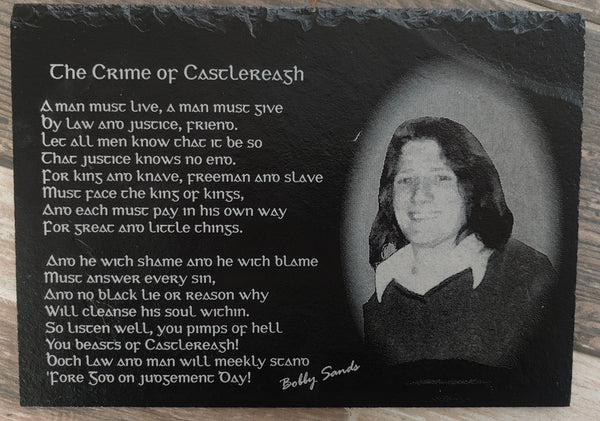 The Crime of Castlereagh
A man must live, a man must give
By law and justice, friend.
Let all men know that it be so
That justice knows no end.
For king and knave, freeman and slave
Must face the king of kings,
And each must pay in his own way
For great and little things.
And he with shame and he with blame
Must answer every sin,
And no black lie or reason why
Will cleanse his soul within.
So listen well, you pimps of hell
You beasts of Castlereagh!
Both law and man will meekly stand
'Fore God on judgement Day!
Bobby Sands